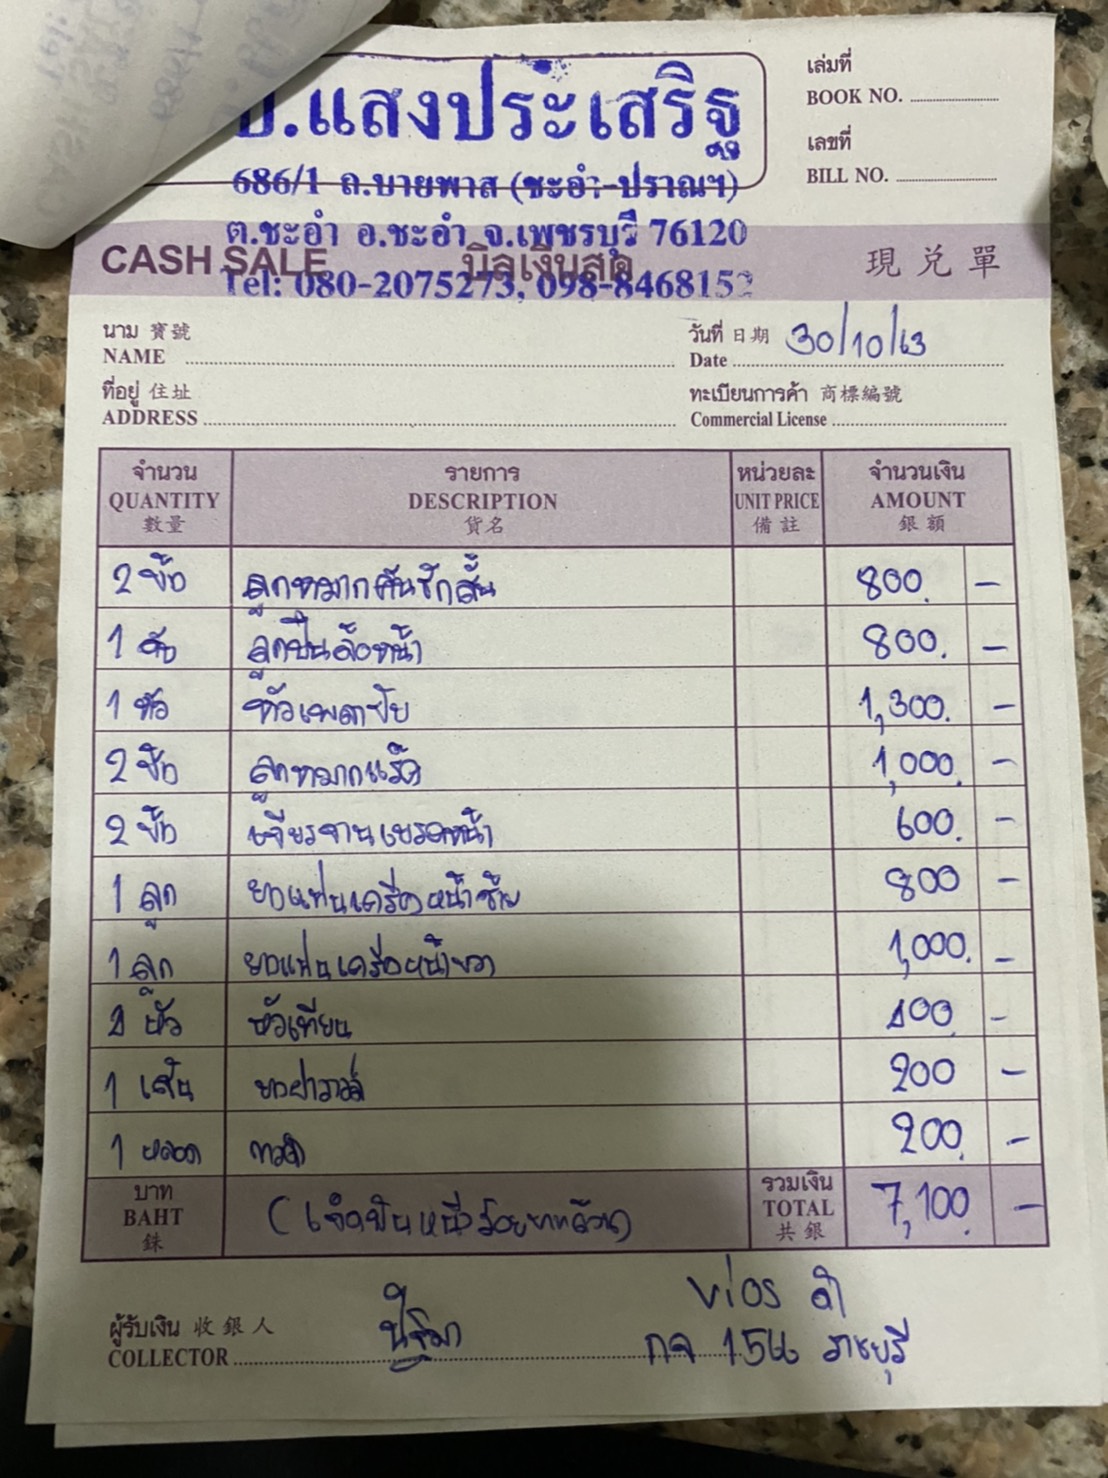 ป.แสงประเสริฐ
686/1 ถ.บายพาส (ชะอำ-ปราณฯ)
ต.ชะอำ อ.ชะอำ จ.เพชรบุรี 76120
Tel: 080-2075273, 098-8468152
เล่มที่
BOOK NO.
เลขที่
BILL NO.
CASH SALE บิลเงินสด 現兌單
นาม 寶號
NAME
วันที่ 日期 30/10/63
Date
ที่อยู่ 住址
ADDRESS
ทะเบียนการค้า 商標編號
Commercial License
จำนวน รายการ หน่วยละ จำนวนเงิน
QUANTITY DESCRIPTION UNIT PRICE AMOUNT
數量 貨名 備註 銀額
2 ชิ้น ลูกหมากคันชักสั้น 800. –
1 ลูกปืนล้อหน้า 800. –
1 หัว หัวเพลาขับ 1,300. –
2 ชิ้น ลูกหมากแร็ค 1,000. –
2 ชิ้น เจียรจานเบรคหน้า 600. –
1 ลูก ยางแท่นเครื่องหน้าซ้าย 800 –
1 ลูก ยางแท่นเครื่องหน้าขวา 1,000. –
หัว หัวเทียน 400 –
1 เส้น ยางฝาวาล์ว 200 –
1 หลอด กาว 200. –
บาท
BAHT
銖
(เจ็ดพันหนึ่งร้อยบาทถ้วน)
รวมเงิน
TOTAL
共銀
7,100. –
ผู้รับเงิน 收銀人
COLLECTOR
vios ดำ
กจ 154 ราชบุรี